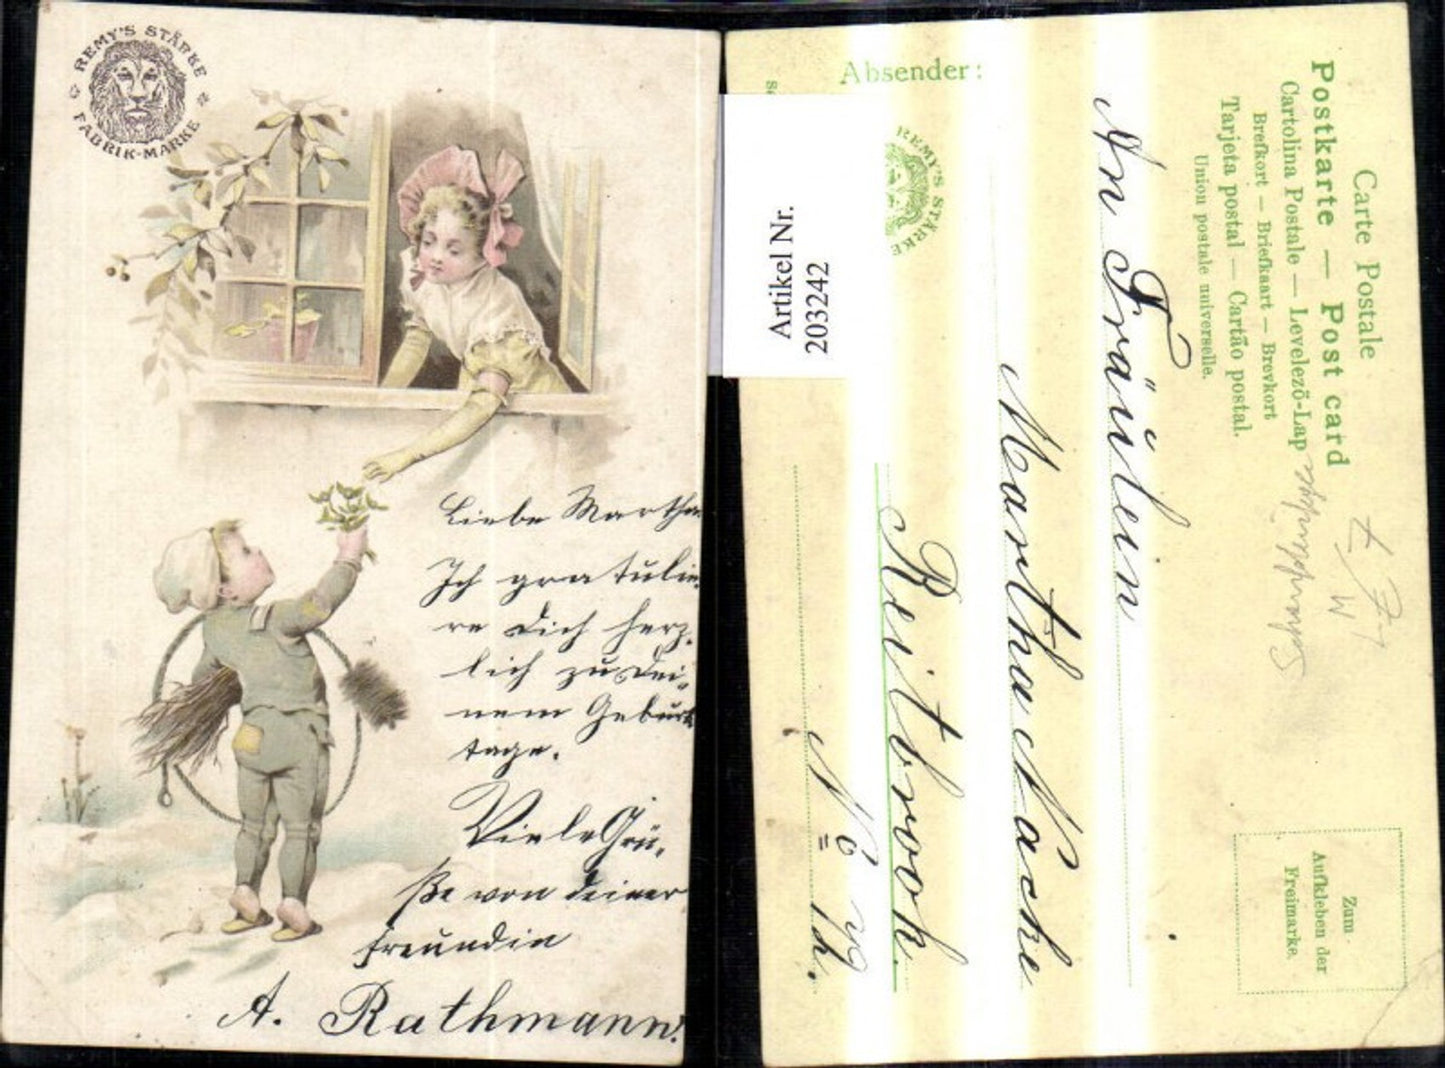 REMY'S STÄRKE
FABRIK-MARKE
Liebe Martha
Ich gratulie
re Dich herz,
lich zu Dei,
nem Geburts
tage.
Viele Grü,
ße von Deiner
Freundin
A. Rathmann.
Carte Postale
Postkarte — Post card
Cartolina Postale — Levelezö-Lap
Brefkort – Briefkaart – Brevkort
Tarjeta postal — Cartão postal.
Union postale universelle.
Absender:
REMY'S STÄRKE
Artikel Nr.
203242
An Fräulein
Martha Nacke
Reitbrook.
Zum
Aufkleben der
Freimarke.